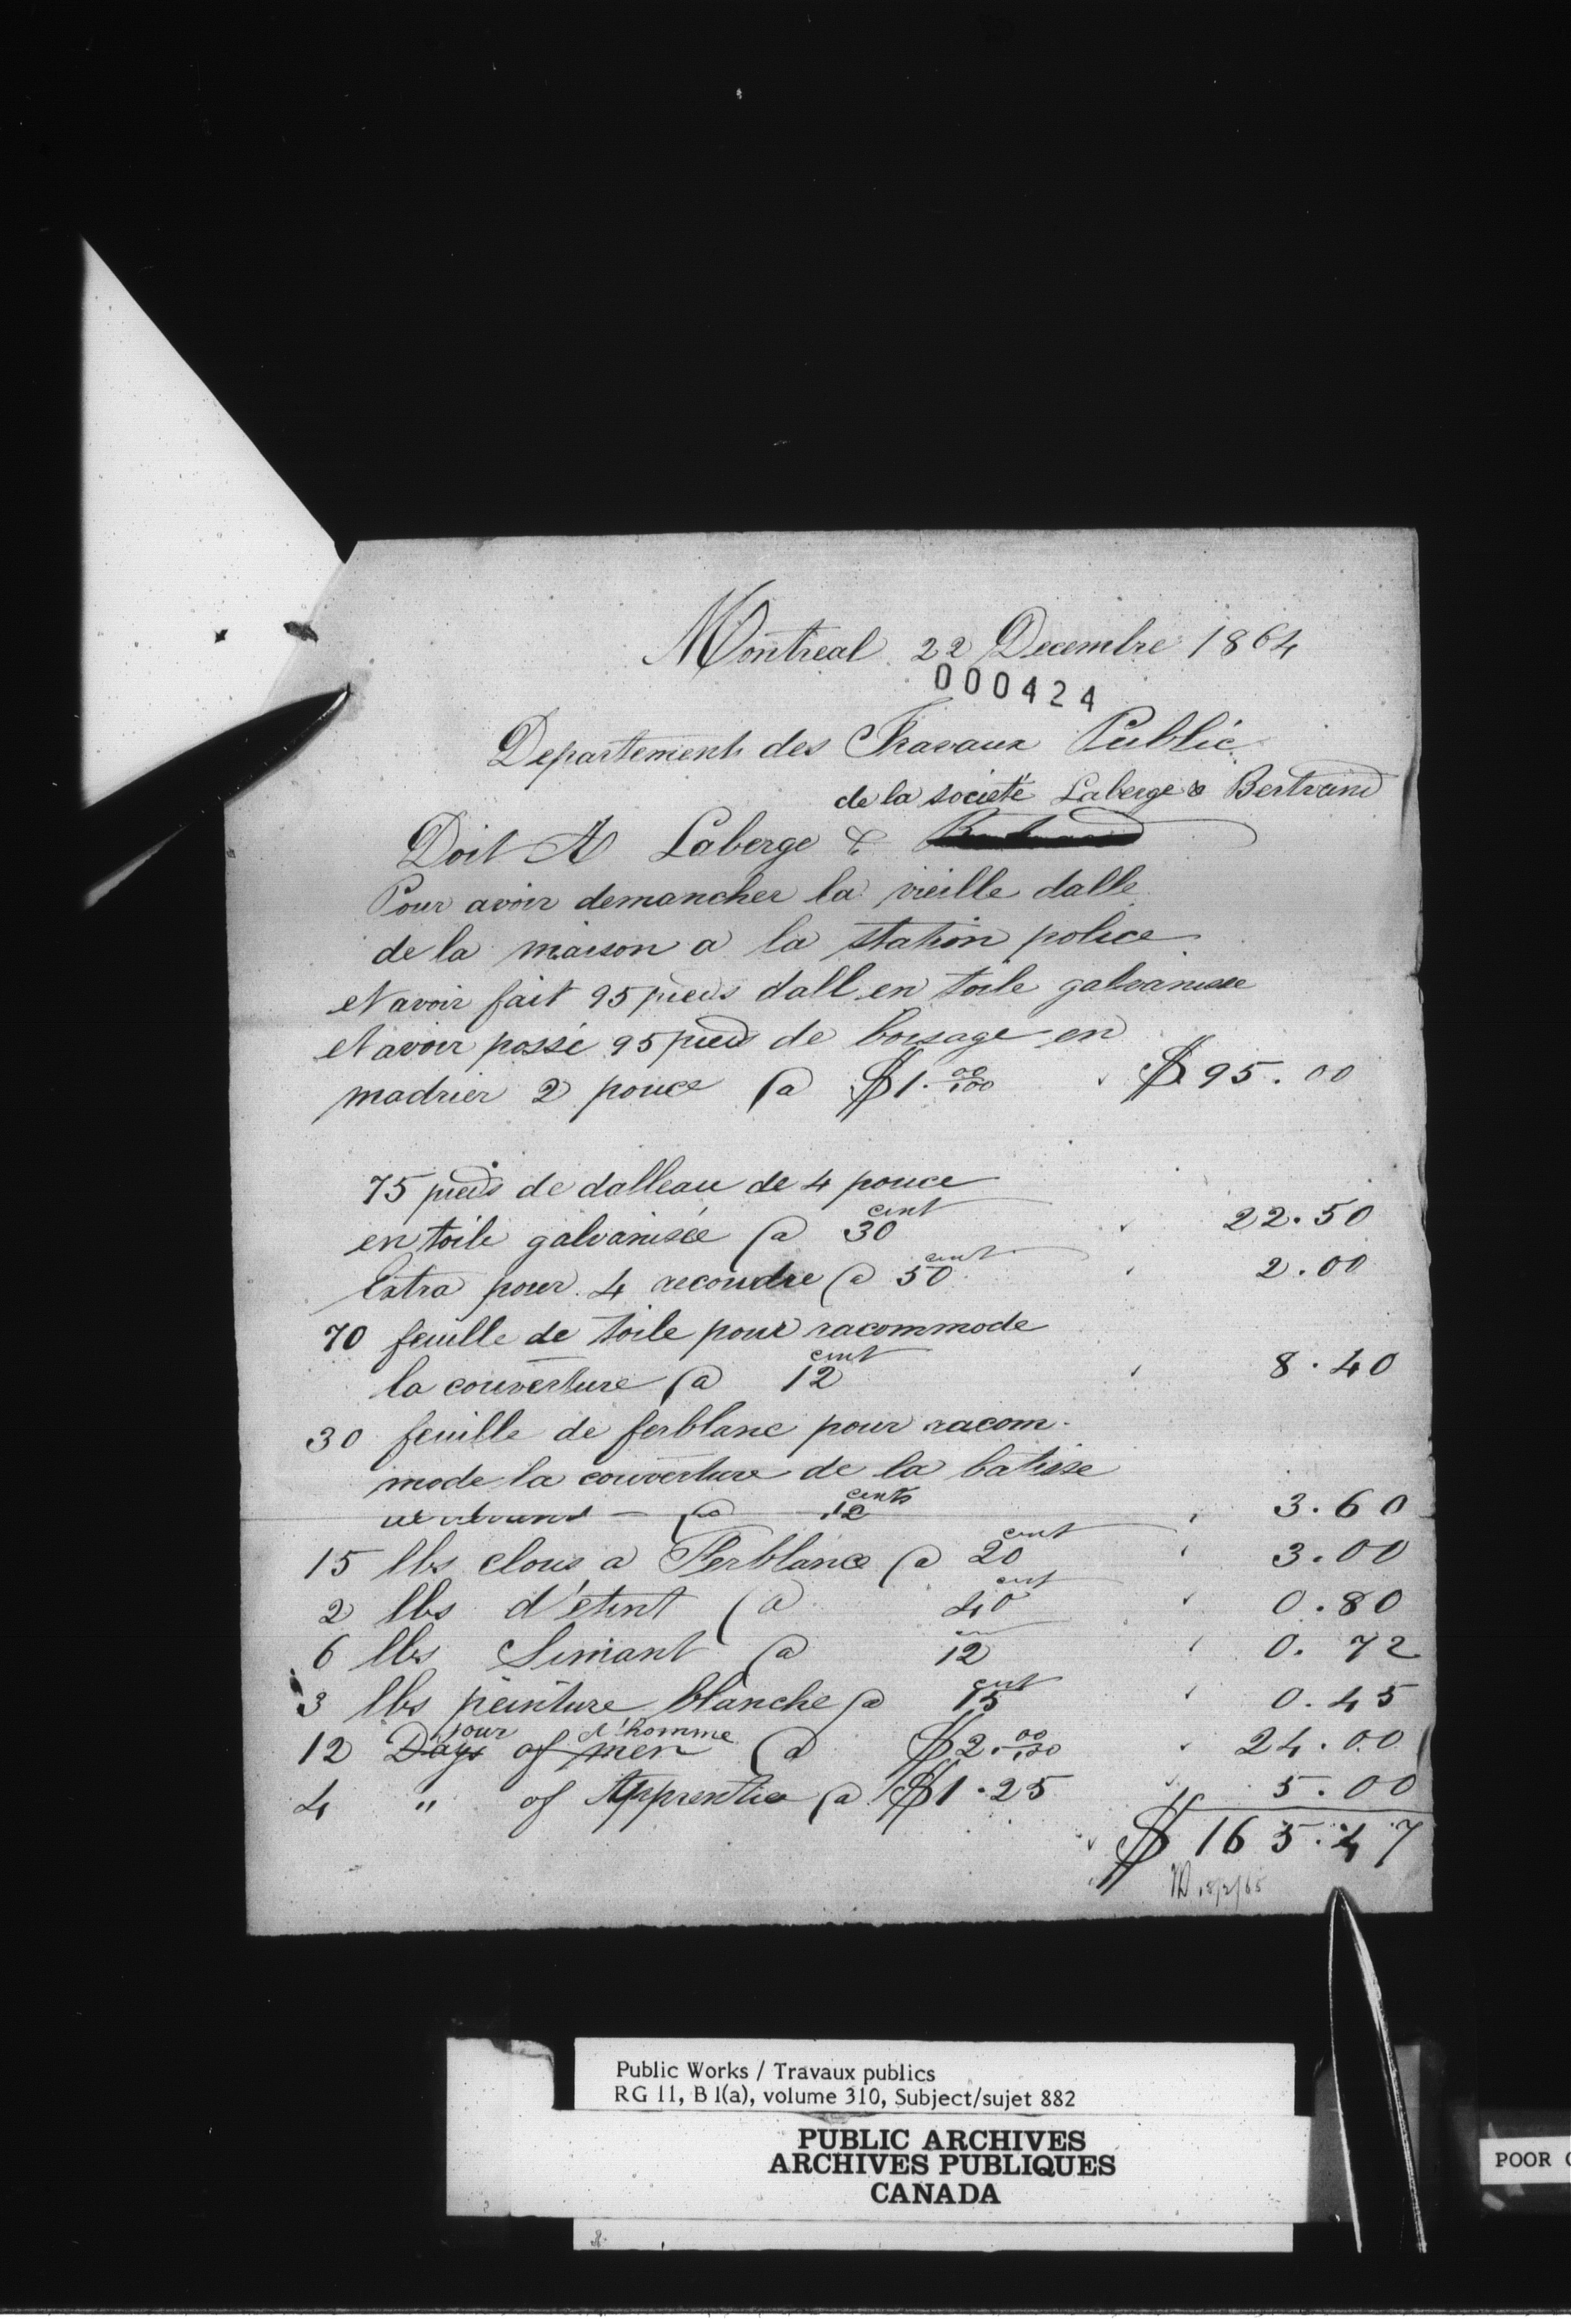 Montreal 22 Decembre 1864
000424
Departement des Travaux Public
de la societé Laberge & Bertrand
Doit A Laberge &
Pour avoir demancher la vieille dalle
de la maison a la station police
et avoir fait 95 pieds dall en toile galvanisee
et avoir possé 95 pieds de boisage en
madrier 2 pouce @ $1.00/100 $95.00
75 pieds de dalleau de 4 pouce
en toile galvanisée @ 30 cent 22.50
Extra pour 4 recoudre @ 50 cent 2.00
70 feuille de toile pour racommode
la couverture @ 12 cent 8.40
30 feuille de ferblanc pour racom-
mode la couverture de la batisse
@ 12 cents 3.60
15 lbs clous a Ferblanc @ 20 cent 3.00
2 lbs d'etent @ 40 cent 0.80
6 lbs Simant @ 12 0.72
3 lbs peinture blanche @ 15 cent 0.45
jour d'homme
12 Days of men @ $2.00/100 24.00
4 " of Apprentice @ $1.25 5.00
$165.47
18/2/65
Public Works / Travaux publics
RG 11, B 1(a), volume 310, Subject/sujet 882
PUBLIC ARCHIVES
ARCHIVES PUBLIQUES
CANADA
POOR